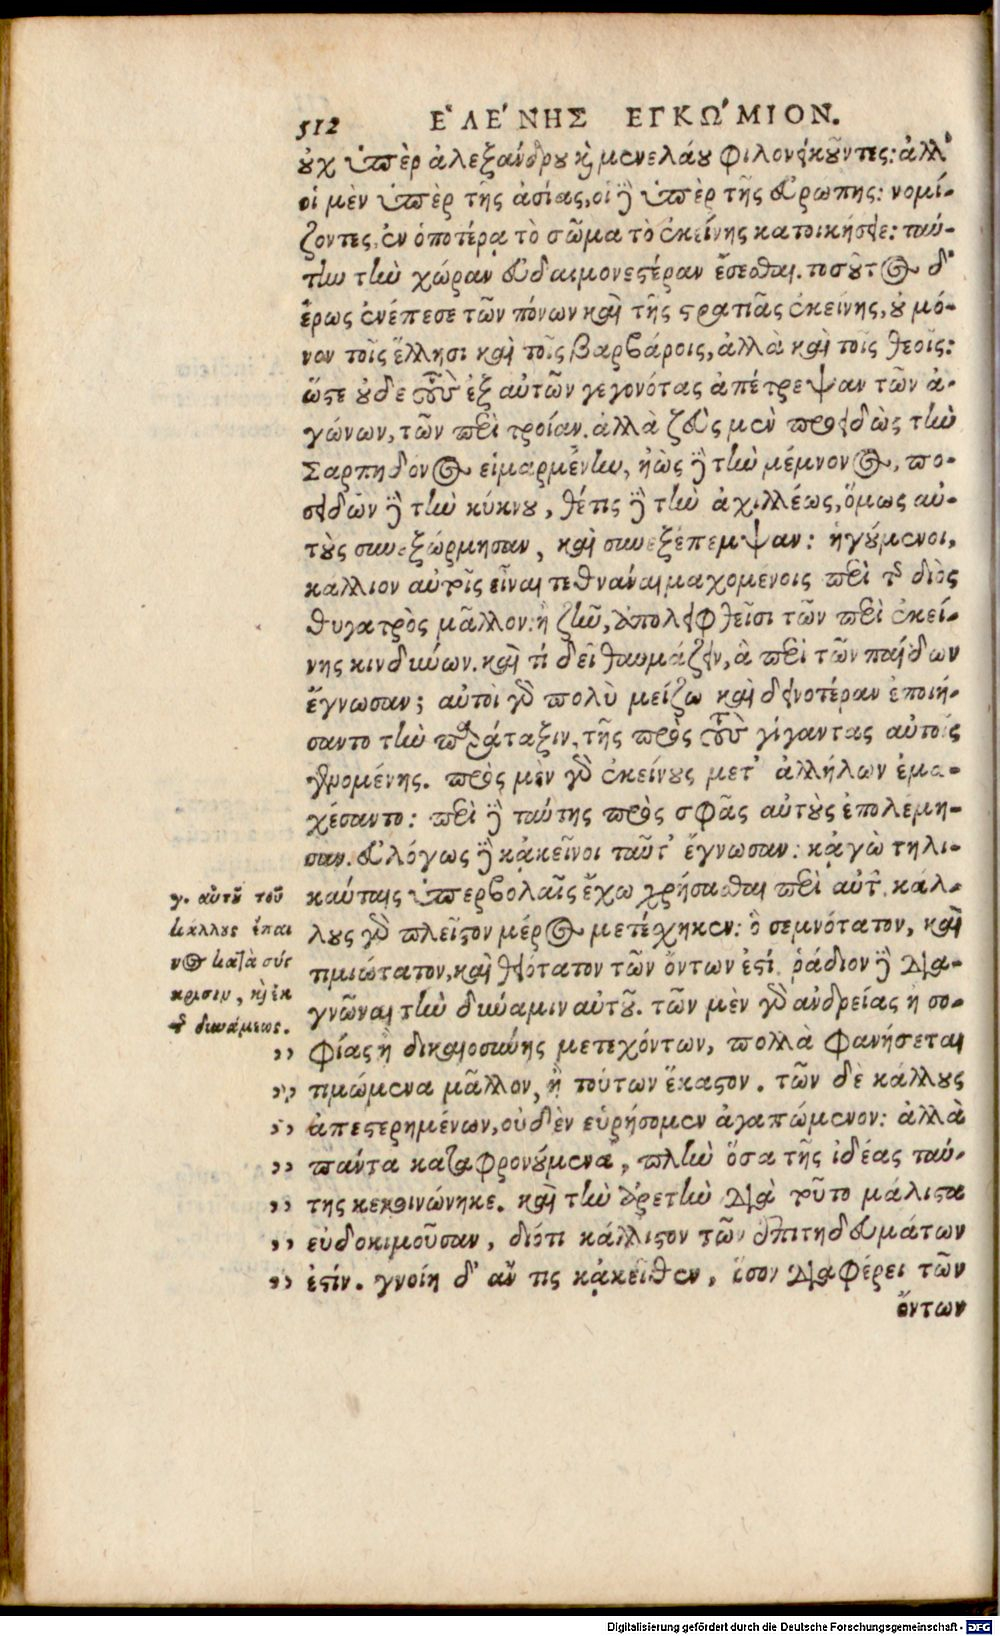 512 ἙΛΕ´ΝΗΣ ΕΓΚΩ´ΜΙΟΝ.
οὐχ ὑπὲρ ἀλεξάνδρου κỳ μενελάου φιλονεικοῦντες: ἀλλ'
οἱ μὲν ὑπὲρ τῆς ἀσίας, οἱ δὲ ὑπὲρ τῆς εὐρωπης: νομί-
ζοντες, ἐν ὁποτέρᾳ τὸ σῶμα τὸ ἐκείνης κατοικήσειε: ταύ-
την τὴν χώραν εὐδαιμονεστέραν ἔσεσθαι. τοσοῦτος δ'
ἔρως ἐνέπεσε τῶν πόνων καὶ τῆς στρατιᾶς ἐκείνης, οὐ μό-
νον τοῖς ἕλλησι καὶ τοῖς βαρβάροις, ἀλλὰ καὶ τοῖς θεοῖς:
ὥστε οὐδε τοὺς ἐξ αὐτῶν γεγονότας ἀπέτρεψαν τῶν ἀ-
γώνων, τῶν περὶ τροίαν. ἀλλὰ ζεὺς μὲν προειδὼς τὴν
Σαρπηδονος εἱμαρμένην, ἠὼς δὲ τὴν μέμνονος, πο-
σειδῶν δὲ τὴν κύκνου, θέτις δὲ τὴν ἀχιλλέως, ὅμως αὐ-
τοὺς συνεξώρμησαν, καὶ συνεξέπεμψαν: ἡγούμενοι,
κάλλιον αὐτοῖς εἶναι τεθνάναι μαχομένοις περὶ τῆς διὸς
θυγατρὸς μᾶλλον: ἢ ζῆν, ἀπολειφθεῖσι τῶν περὶ ἐκεί-
νης κινδύνων. καὶ τί δεῖ θαυμάζειν, ἃ περὶ τῶν παίδων
ἔγνωσαν; αὐτοὶ γὰρ πολὺ μείζω καὶ δεινοτέραν ἐποιή-
σαντο τὴν παράταξιν, τῆς πρὸς τοὺς γίγαντας αὐτοῖς
γενομένης. πρὸς μὲν γὰρ ἐκείνους μετ' ἀλλήλων ἐμα-
χέσαντο: περὶ δὲ ταύτης πρὸς σφᾶς αὐτοὺς ἐπολέμη-
σαν. εὐλόγως δὲ κἀκεῖνοι ταῦτ' ἔγνωσαν: κἀγὼ τηλι-
καύταις ὑπερβολαῖς ἔχω χρήσασθαι περὶ αὐτῆς. κάλ-
λους γὰρ πλεῖστον μέρος μετέσχηκεν: ὃ σεμνότατον, καὶ
τιμιώτατον, καὶ θειότατον τῶν ὄντων ἐστί. ῥᾴδιον δὲ δια-
γνῶναι τὴν δύναμιν αὐτοῦ. τῶν μὲν γὰρ ἀνδρείας ἢ σο-
φίας ἢ δικαιοσύνης μετεχόντων, πολλὰ φανήσεται
τιμώμενα μᾶλλον, ἢ τούτων ἕκαστον. τῶν δὲ κάλλους
ἀπεστερημένων, οὐδὲν εὑρήσομεν ἀγαπώμενον: ἀλλὰ
πάντα καταφρονούμενα, πλὴν ὅσα τῆς ἰδέας ταύ-
της κεκοινώνηκε. καὶ τὴν ἀρετὴν διὰ τοῦτο μάλιστα
εὐδοκιμοῦσαν, διότι κάλλιστον τῶν ἐπιτηδευμάτων
ἐστίν. γνοίη δ' ἄν τις κἀκεῖθεν, ὅσον διαφέρει τῶν
ὄντων
γ. αὐτοῦ τοῦ
κάλλους ἔπαι
νος κατὰ σύγ
κρισιν, κỳ ἐκ
τῆς δυνάμεως.
Digitalisierung gefördert durch die Deutsche Forschungsgemeinschaft - DFG